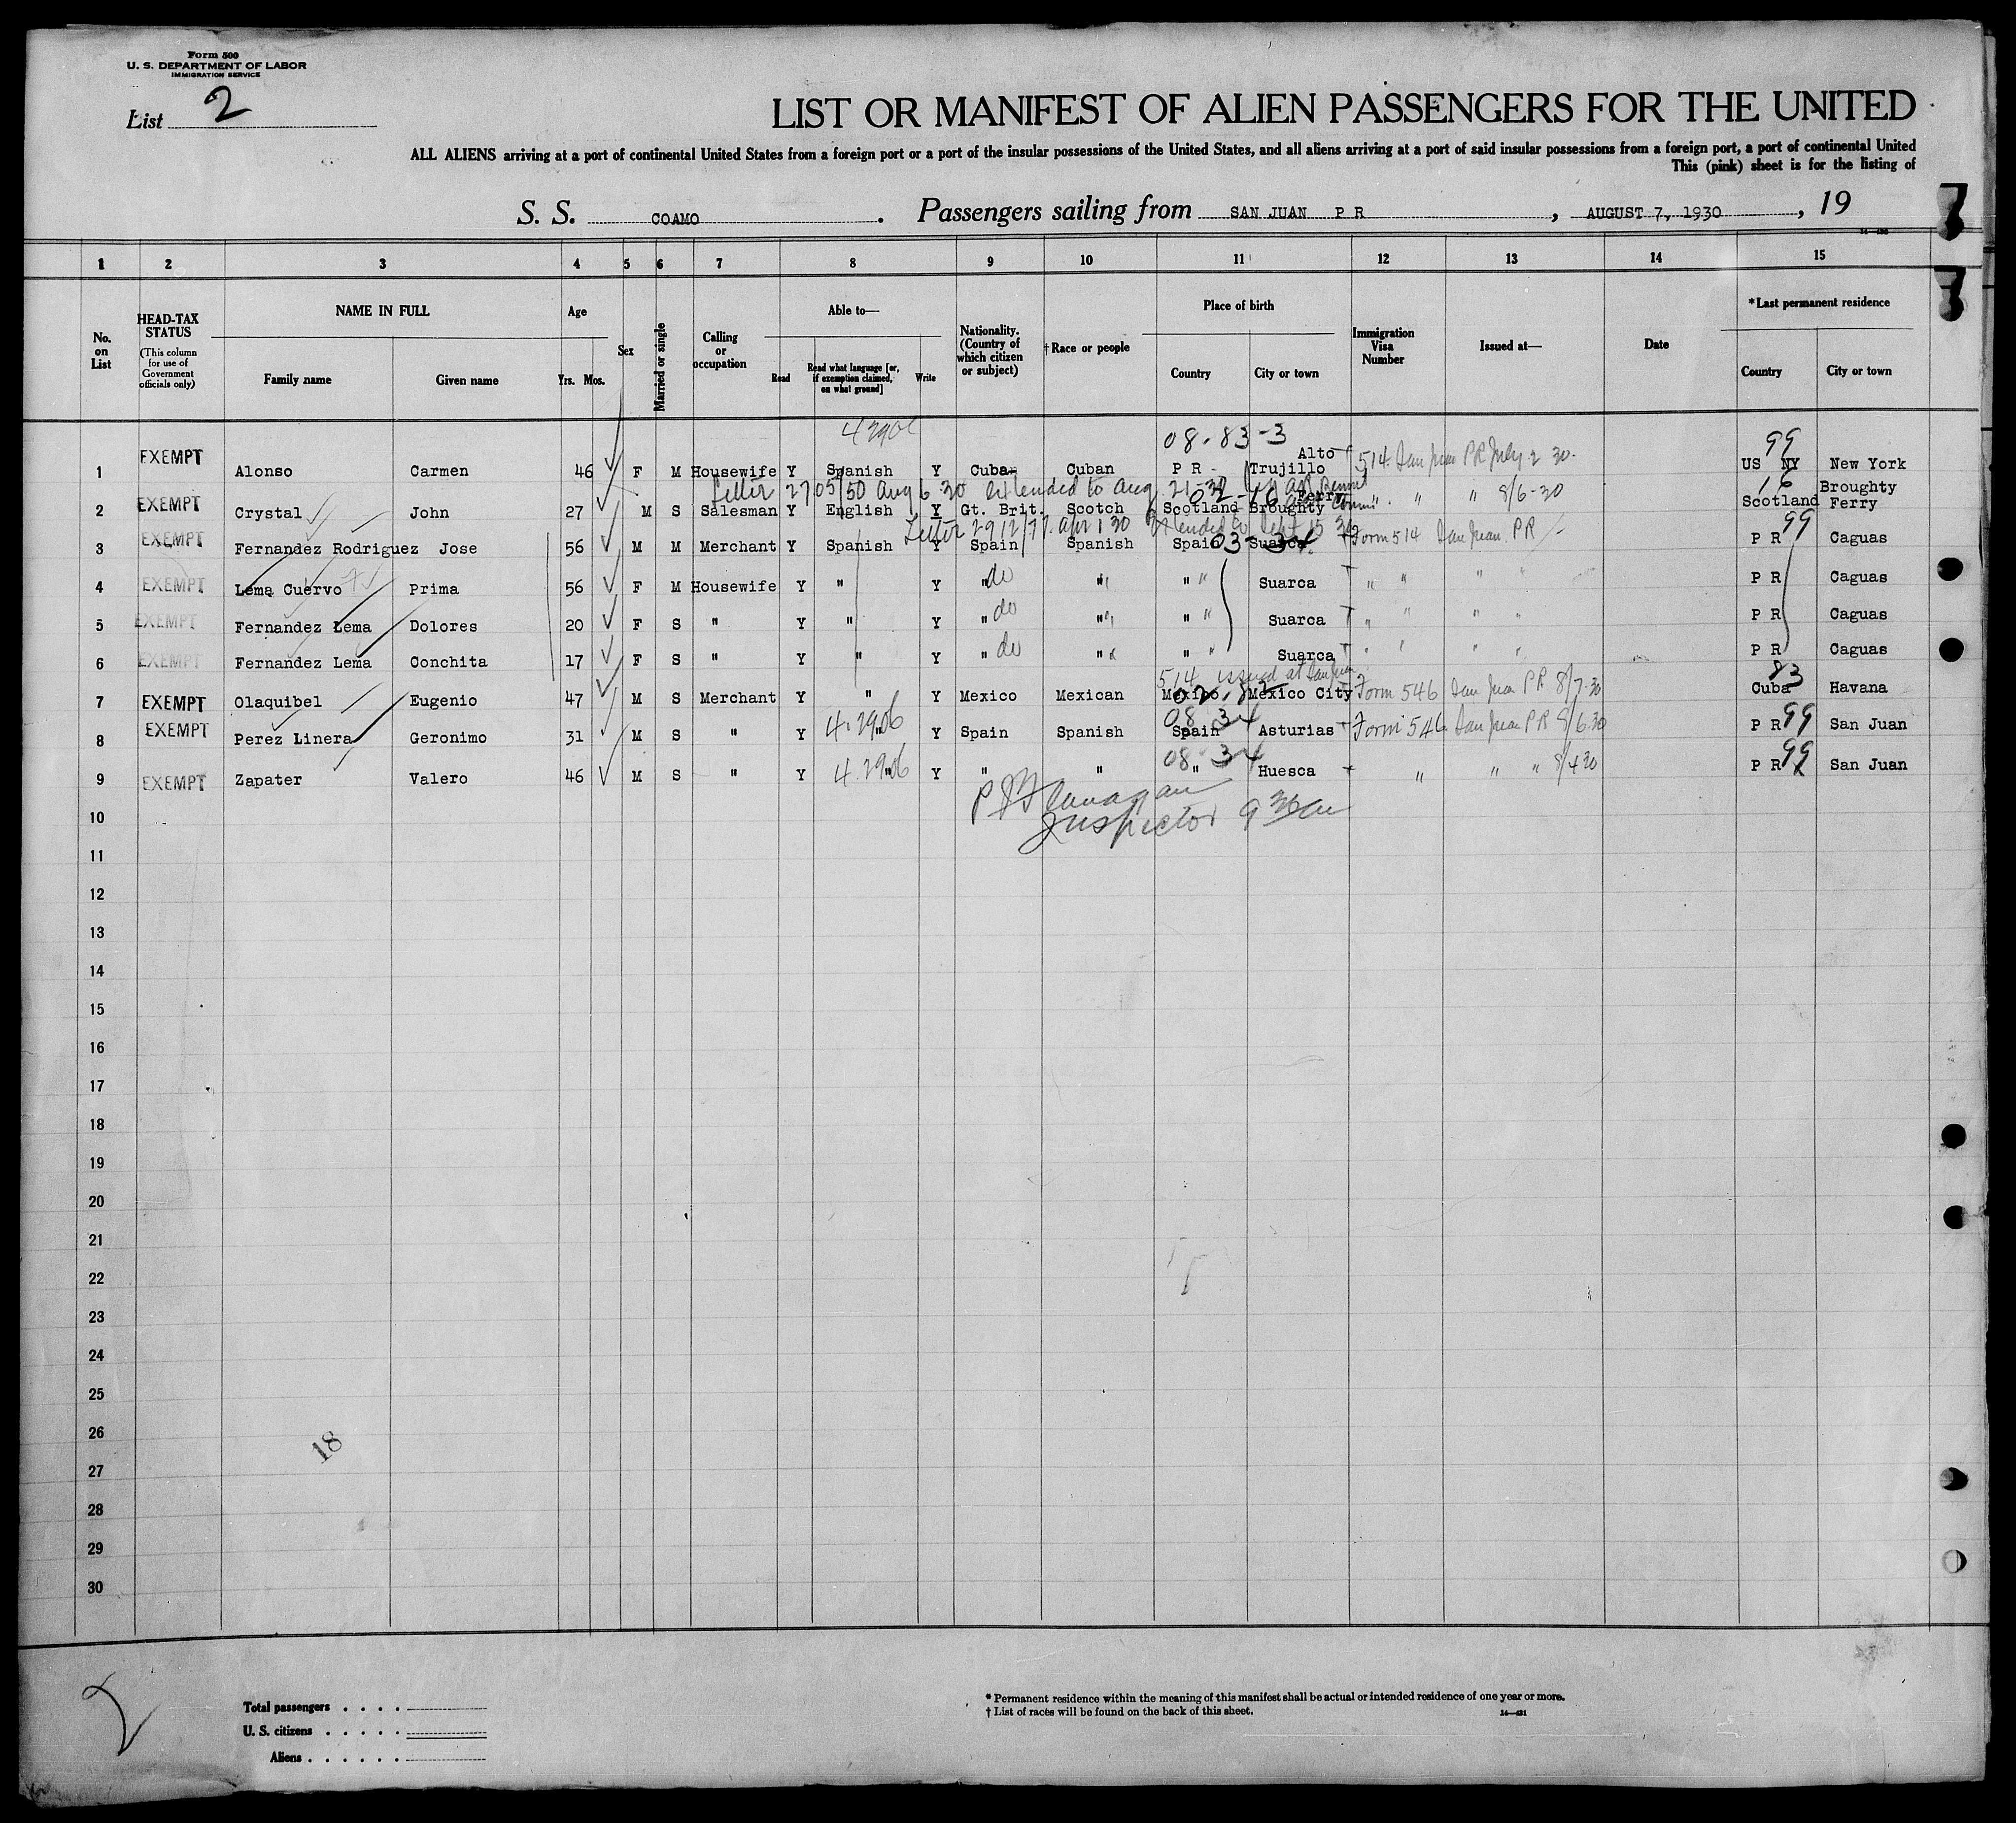 Form 500
U. S. DEPARTMENT OF LABOR
IMMIGRATION SERVICE
List 2
LIST OR MANIFEST OF ALIEN PASSENGERS FOR THE UNITED
ALL ALIENS arriving at a port of continental United States from a foreign port or a port of the insular possessions of the United States, and all aliens arriving at a port of said insular possessions from a foreign port, a port of continental United
This (pink) sheet is for the listing of
S. S. COAMO. Passengers sailing from SAN JUAN P R, AUGUST 7, 1930, 19
3
1 2 3 4 5 6 7 8 9 10 11 12 13 14 15
3
HEAD-TAX STATUS (This column for use of Government officials only)
No. on List
NAME IN FULL
Family name Given name
Age
Yrs. Mos.
Sex
Married or single
Calling or occupation
Able to—
Read Read what language [or, if exemption claimed, on what ground] Write
Nationality. (Country of which citizen or subject)
† Race or people
Place of birth
Country City or town
Immigration Visa Number
Issued at—
Date
*Last permanent residence
Country City or town
08-83-3 99
1 EXEMPT Alonso Carmen 46 F M Housewife Y Spanish Y Cuba Cuban P R Alto Trujillo 514 San Juan PR July 2 30 US NY New York
Letter 2705/50 Aug 6 30 extended to Aug 21-30
02-16 16
2 EXEMPT Crystal John 27 M S Salesman Y English Y Gt. Brit. Scotch Scotland Broughty Ferry " " " 8/6-30 Scotland Broughty Ferry
Letter 2912/77 Apr 1 30 Extended to Sept 15 30
03-34 99
3 EXEMPT Fernandez Rodriguez Jose 56 M M Merchant Y Spanish Y Spain Spanish Spain Suarca Form 514 San Juan PR P R Caguas
4 EXEMPT Lema Cuervo Prima 56 F M Housewife Y " Y " do " " " Suarca " " " " P R Caguas
5 EXEMPT Fernandez Lema Dolores 20 F S " Y " Y " do " " " Suarca " " " " P R Caguas
6 EXEMPT Fernandez Lema Conchita 17 F S " Y " Y " do " " " Suarca " " " " P R Caguas
514 issued at San Juan
02-82 83
7 EXEMPT Olaquibel Eugenio 47 M S Merchant Y " Y Mexico Mexican Mexico Mexico City Form 546 San Juan PR 8/7-30 Cuba Havana
08 34 99
8 EXEMPT Perez Linera Geronimo 31 M S " Y " 4-2906 Y Spain Spanish Spain Asturias Form 546 San Juan PR 8/6-30 P R San Juan
08 34 99
9 EXEMPT Zapater Valero 46 M S " Y " 4-2906 Y " " " Huesca " " " 8/4 30 P R San Juan
P J Flanagan
Inspector 9 30 am
10
11
12
13
14
15
16
17
18
19
20
21
22
23
24
25
26
18
27
28
29
30
2
Total passengers . . . .
U. S. citizens . . . . .
Aliens . . . . . .
* Permanent residence within the meaning of this manifest shall be actual or intended residence of one year or more.
† List of races will be found on the back of this sheet.
14—431